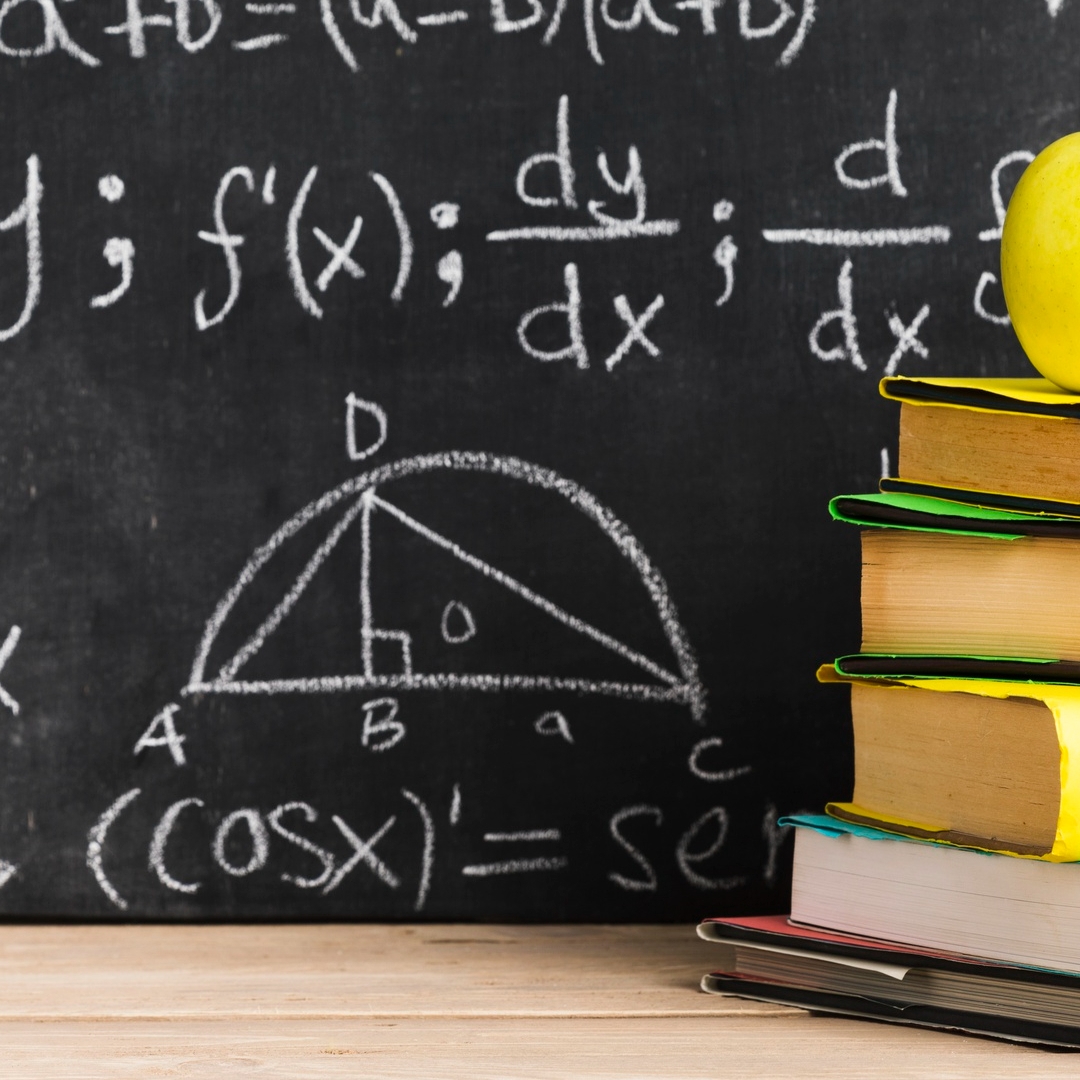 a+b=(a-b)(a+b)
y; f'(x); dy/dx; d/dx
D
O
A B a C
(cosx)' = sen